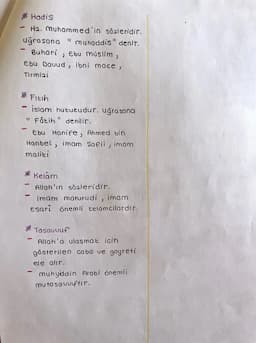 * Hadis
- Hz. Muhammed'in sözleridir.
uğraşana " muhaddis" denir.
- Buhari , Ebu müslim ,
Ebu Davud , ibni mace ,
Tirmizi
* Fıkıh
- islam hukukudur. uğraşana
" Fâkih " denilir.
- Ebu Hanife , Ahmed bin
Hanbel , imam Şafii , imam
maliki
* Kelâm
- Allah'ın sözleridir.
- imam maturudi , imam
Eşari önemli kelamcılardır.
* Tasavvuf
- Allah'a ulaşmak için
gösterilen çaba ve gayreti
ele alır.
- muhyiddin Arabi önemli
mutasavvuftır.